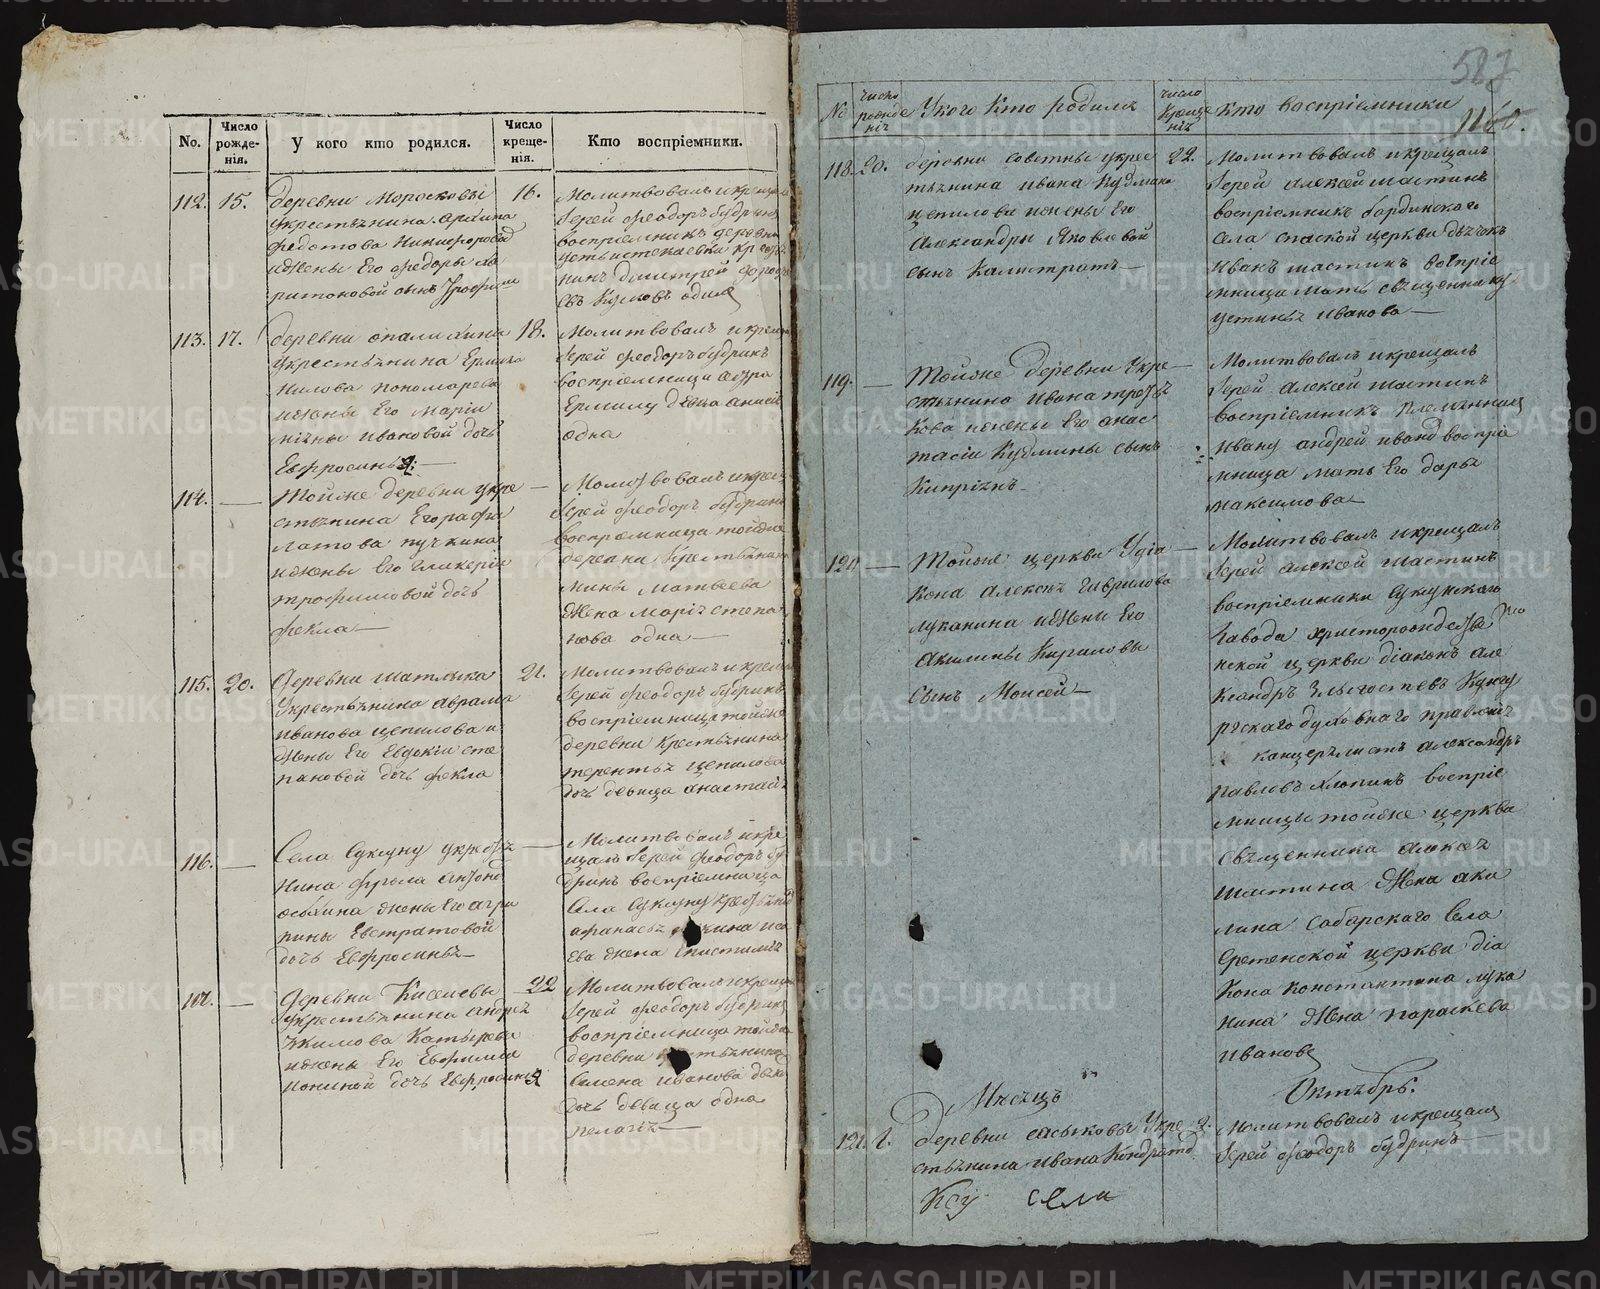 No.
Число рожде-нія.
У кого кто родился.
Число креще-нія.
Кто воспріемники.
112. 15.
деревни Мороскові
укрестьянина архипа
федотова Никифорова
ижены Его федоры ха
ритоновой сынъ Трофим
16.
Молитвовалъ икрещал
Іерей феодоръ будринъ
воспріемникъ деревни
нинъ Димитрей
113. 17.
деревни опалихина
укрестьянина Ермила
нилова пономарева
ижены Его Маріи
ивановой дочь
Евфросинья
18.
Молитвовалъ икрещал
Іерей феодоръ будринъ
воспріемница
Ермилу анисія
одна
114. —
Тойже деревни укре
стьянина Егора фи
латова пучкина
ижены Его гликеріи
трофимовой дочь
фекла
Молитвовалъ икрещ
Іерей феодоръ будринъ
воспріемница тойже
деревни крестьянина
мины матвеева
жена марія степа
нова одна
115. 20.
Деревни шатлыка
укрестьянина аврама
иванова цепилова и
жены Его Евдокіи сте
пановой дочь фекла
21.
Молитвовалъ икрещал
Іерей феодоръ будринъ
воспріемница тойже
деревни крестьянина
терентья цепилова
дочь девица анастасія
116. —
Села Суксуну укресть
нина фрола
жены Его агри
пины Евстратовой
дочь Евфросинья
Молитвовалъ икре
щалъ Іерей феодоръ бу
дринъ воспріемница
Села Суксуну крестьянина
афанасья
ева жена
117. —
Деревни Киселевы
укрестьянина андрея
Екимова Катырева
ижены Его Евфиміи
дочь Евфросинья
22
Молитвовалъ икрещал
Іерей феодоръ будринъ
воспріемница тойже
деревни крестьянина
Семена иванова
дочь девица одна
пелагія
587
1160.
No
число рожденія
У кого Кто родился
число Крещенія
Кто воспріемники
118. 20.
деревни советны укрес
тьянина ивана Кузмина
цепилова ижены Его
Александры Яковлевой
сынъ Калистратъ
22.
Молитвовалъ икрещалъ
Іерей Алексей шастинъ
воспріемникъ бардинскаго
села спаской церкви дьячекъ
иванъ шастинъ воспріе
мница мать священнику
устинья иванова
119. —
Тойже деревни Укре
стьянина ивана третья
кова ижены Его анас
тасіи Кузмины сынъ
Кипріянъ
Молитвовалъ икрещалъ
Іерей Алексей шастинъ
воспріемникъ племянникъ
ивану андрей ивано воспріе
мница мать Его дарья
максимова
120 —
Тойже церкви Удіа
кона Алексея гаврилова
луканина ижены Его
акилины Кириловы
сынъ Моисей
Молитвовалъ икрещалъ
Іерей Алексей шастинъ
воспріемники Суксунскаго
завода христорождестве
нской церкви діаконъ але
ксандръ Злыгостевъ Кунгу
рскаго духовнаго правленія
канцеляристъ Александръ
павловъ хлопинъ воспріе
мницы тойже церкви
священника Алексея
шастина жена аки
лина сабарскаго села
сретенской церкви діа
кона константина лука
нина жена параскева
иванова
Месяцъ Октябрь.
121. 1.
Деревни саськовы Укре
стьянина ивана Кондрато
2.
Молитвовалъ икрещалъ
Іерей феодоръ будринъ
села